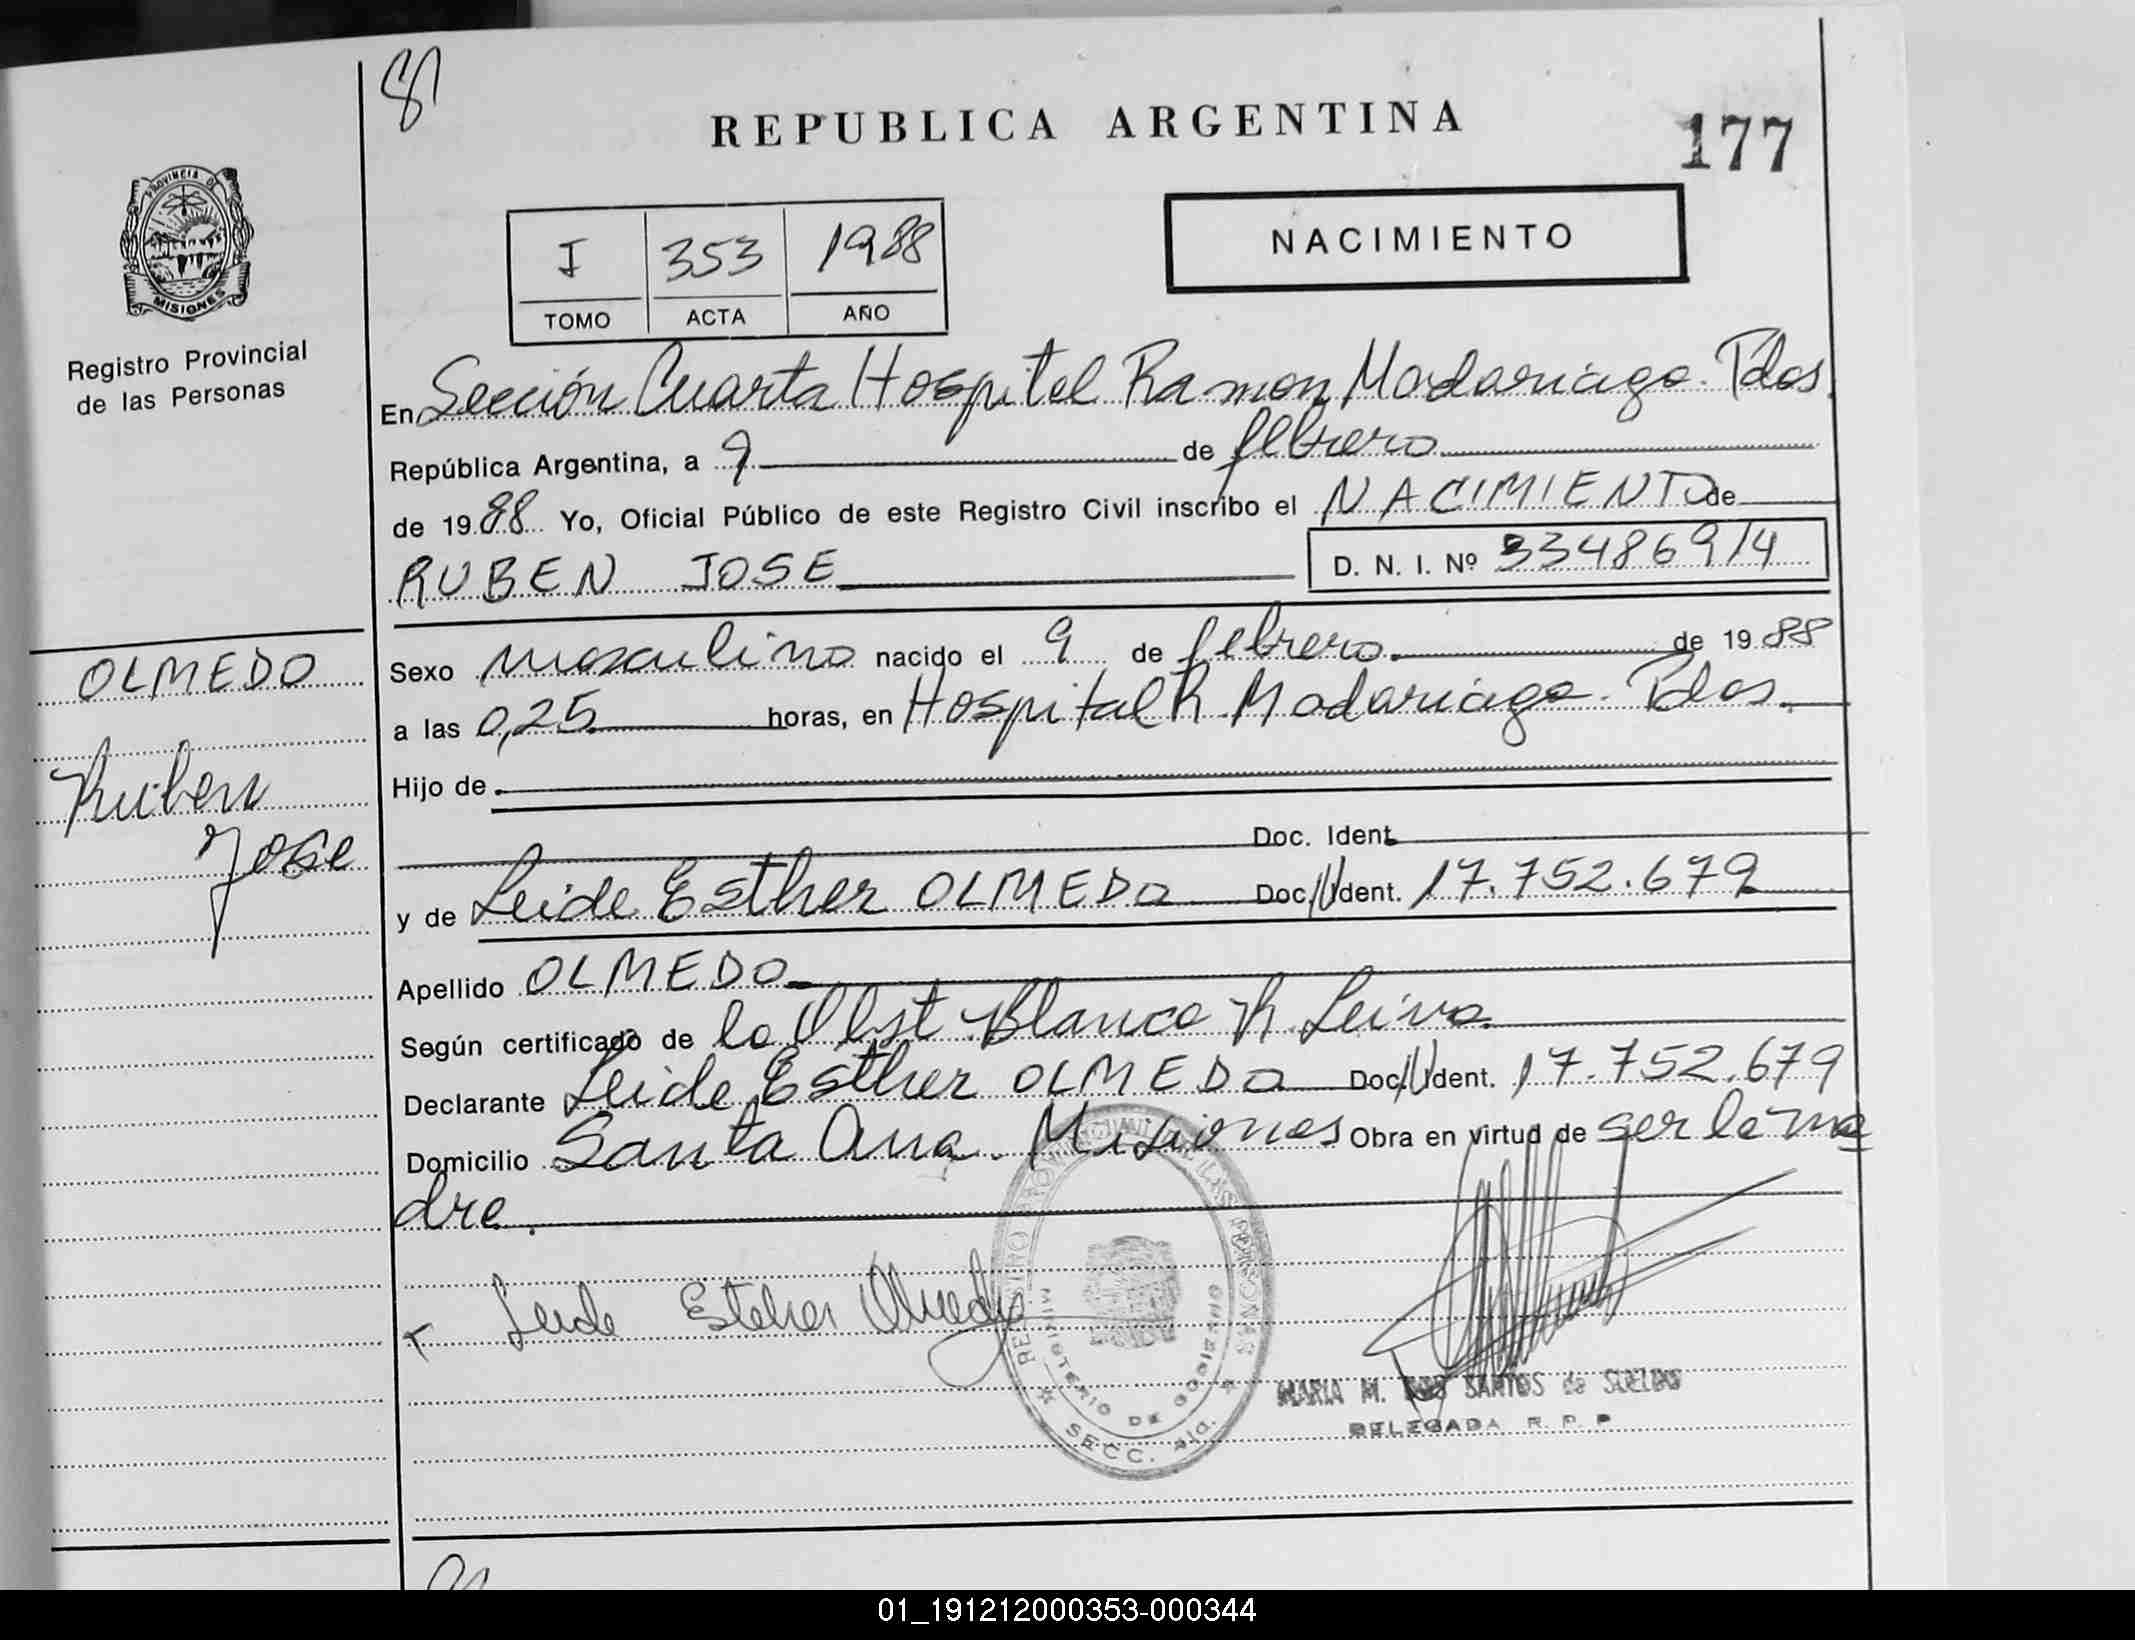 REPUBLICA ARGENTINA
177
PROVINCIA DE MISIONES
Registro Provincial
de las Personas
I 353 1988
TOMO ACTA AÑO
NACIMIENTO
En Sección Cuarta Hospital Ramon Madariaga. Pdas.
República Argentina, a 9 de febrero
de 1988 Yo, Oficial Público de este Registro Civil inscribo el NACIMIENTO de
RUBEN JOSE D. N. I. Nº 33486914
Sexo masculino nacido el 9 de febrero de 1988
a las 0,25 horas, en Hospital R. Madariaga. Pdas.
Hijo de
Doc. Ident.
y de Leide Esther OLMEDO Doc. Ident. 17.752.679
Apellido OLMEDO
Según certificado de la Obst. Blanca R. Leiva
Declarante Leide Esther OLMEDO Doc. Ident. 17.752.679
Domicilio Santa Ana. Misiones Obra en virtud de ser la ma
dre.
OLMEDO
Ruben
Jose
Leide Esteher Olmedo
REGISTRO PROVINCIAL DE LAS PERSONAS
MINISTERIO DE GOBIERNO
SECC. 4ta.
MARIA M. DOS SANTOS de SUELDO
DELEGADA R. P. P.
01_191212000353-000344